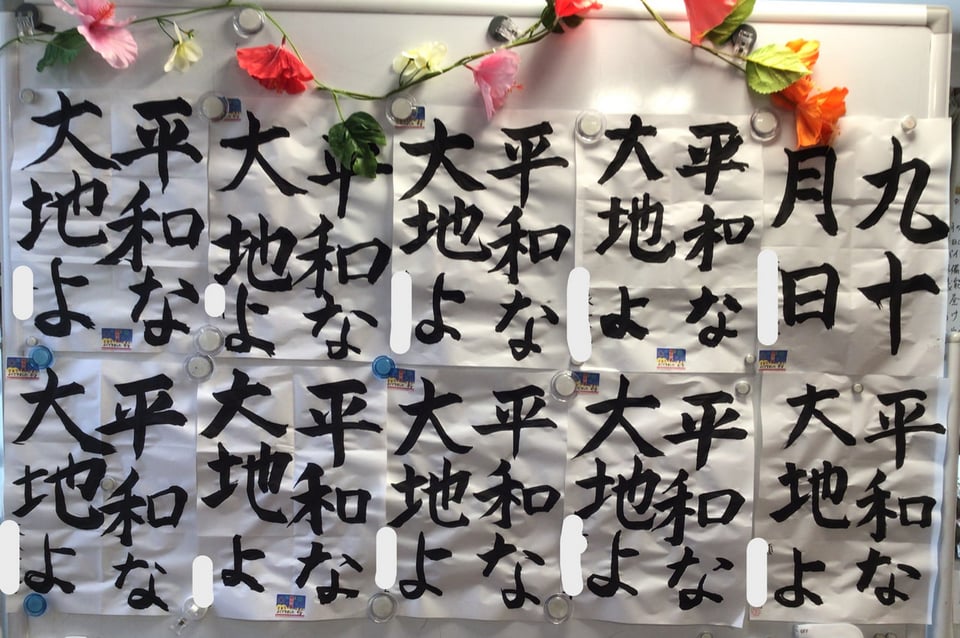 九十
月日
平和な
大地よ
平和な
大地よ
平和な
大地よ
平和な
大地よ
平和な
大地よ
平和な
大地よ
平和な
大地よ
平和な
大地よ
平和な
大地よ